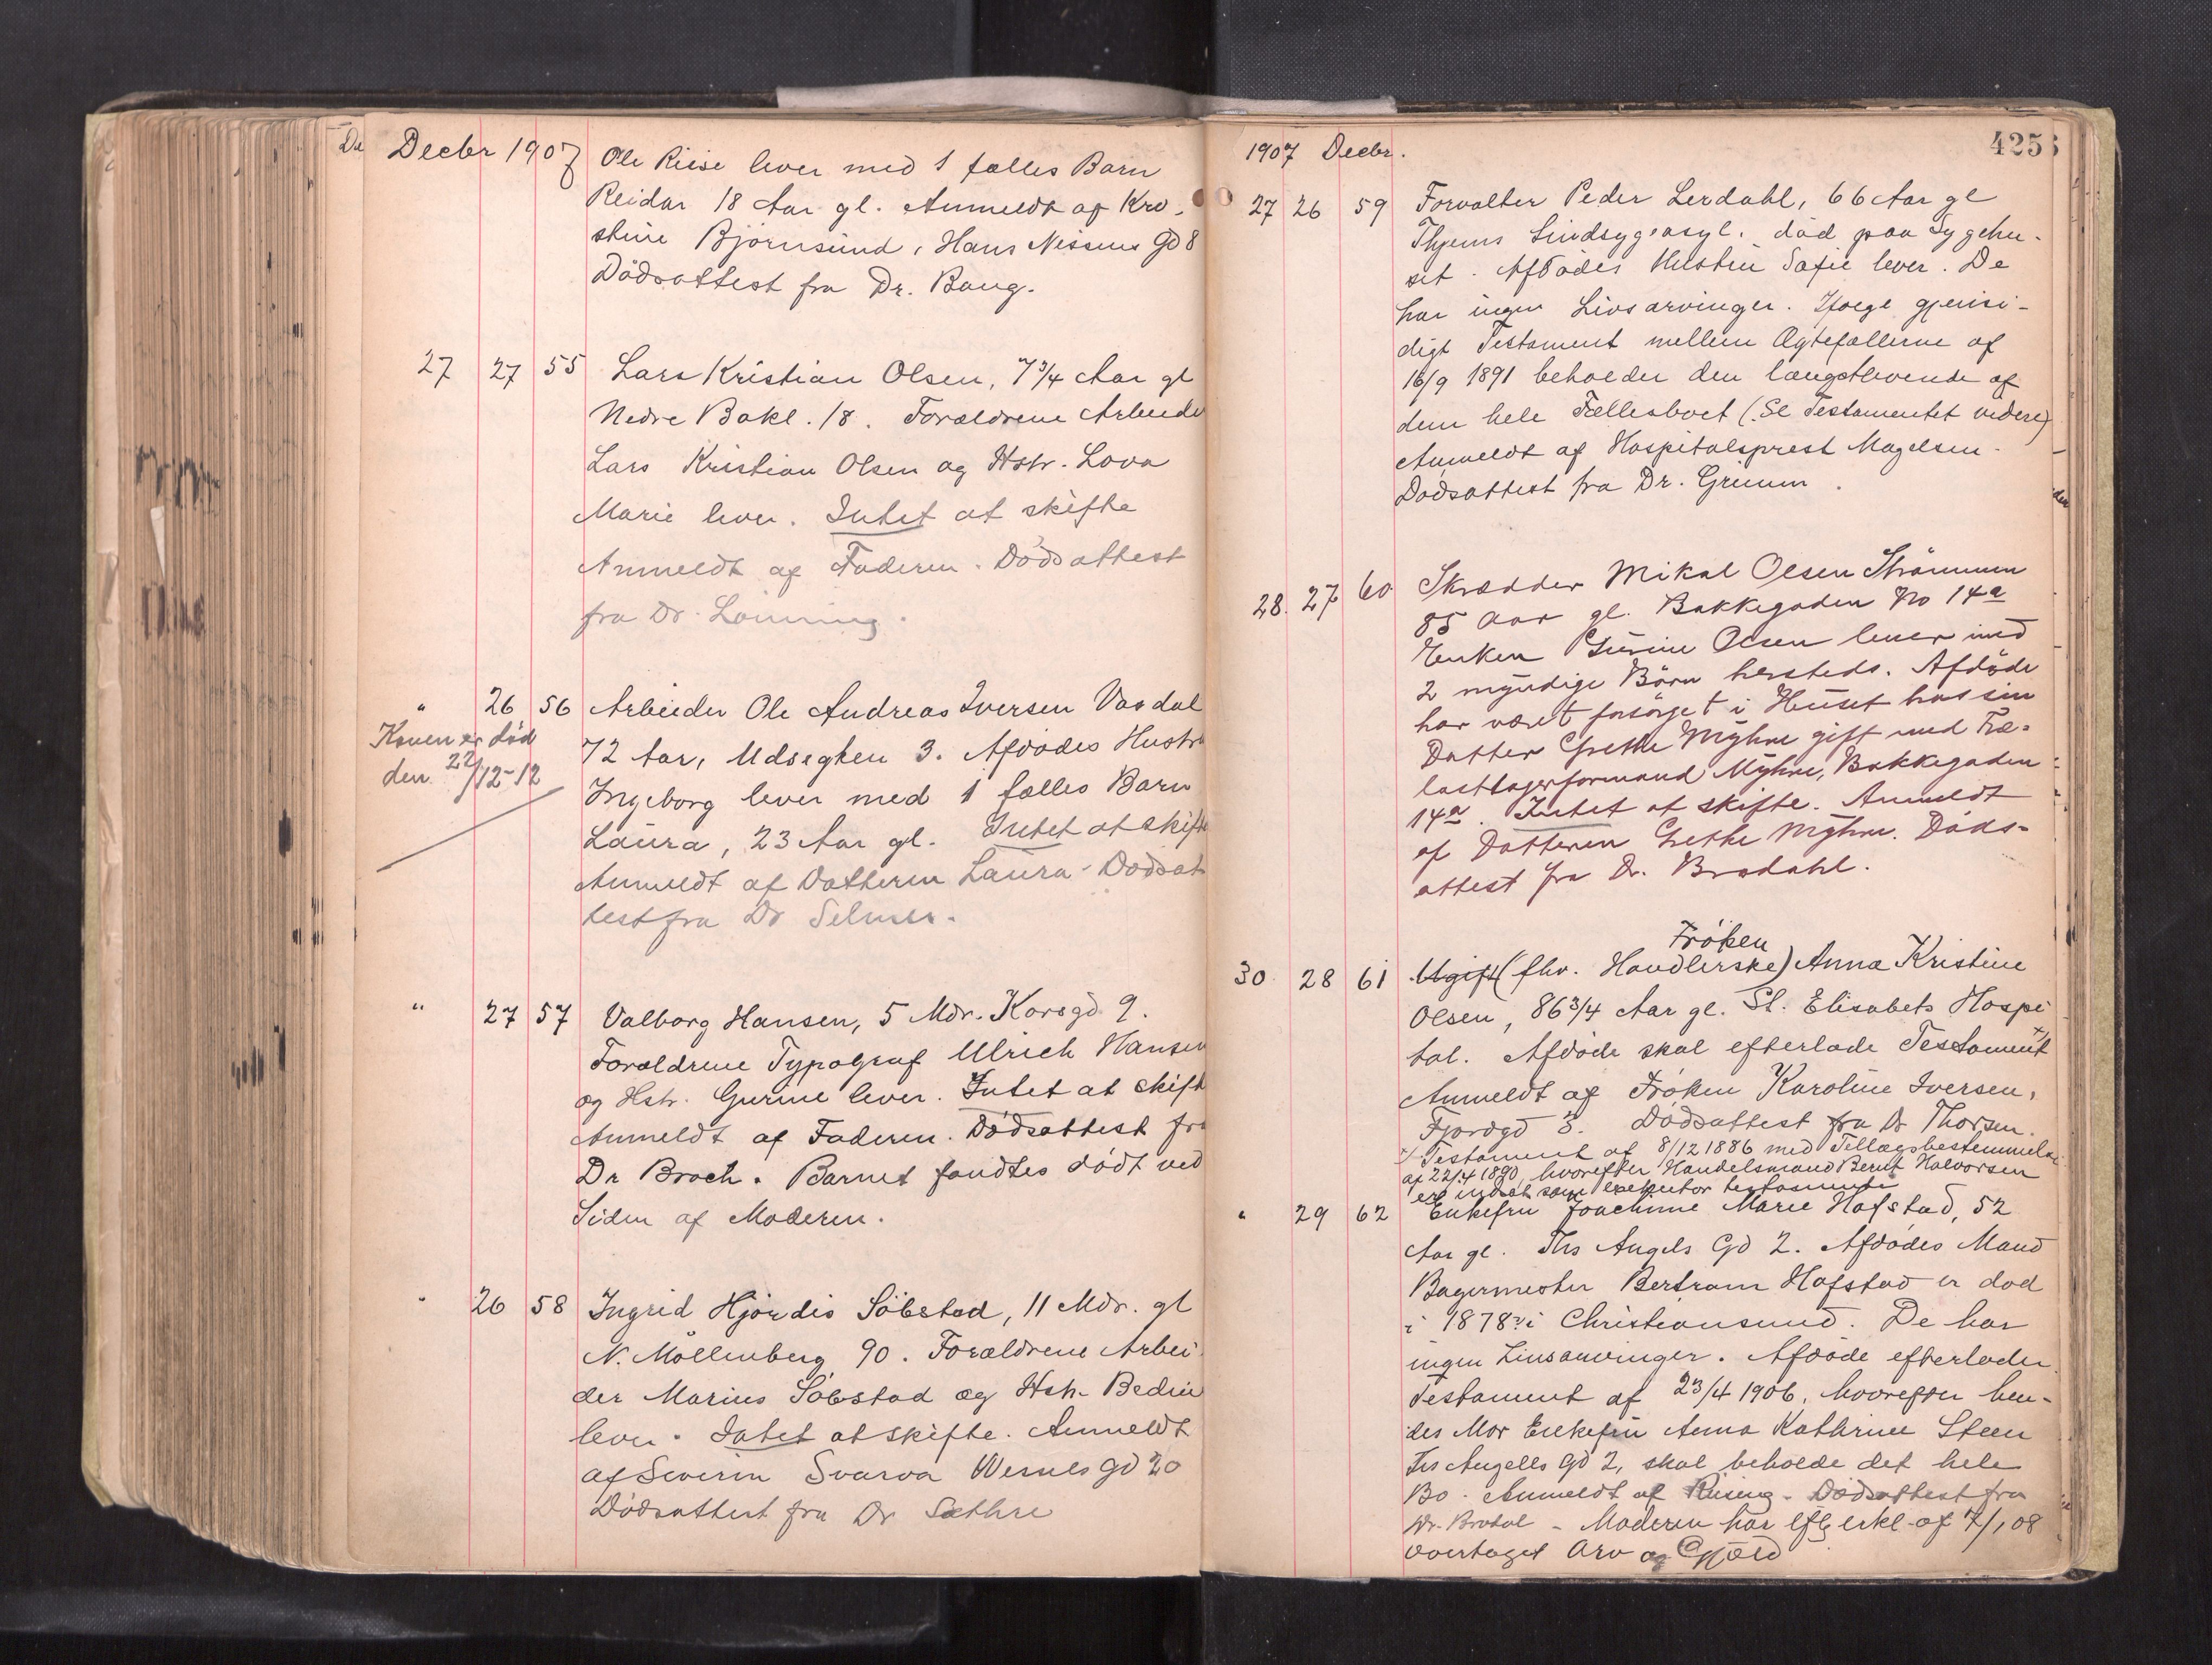 Decbr 1907
Ole Riise lever med 1 fælles Barn
Reidar 18 Aar gl. Anmeldt af Kro-
stine Bjørnsund, Hans Nissens Gd 8
Dødsattest fra Dr. Bang.
27 27 55 Lars Kristian Olsen, 7 3/4 Aar gl
Nedre Bakl. 18. Forældrene Arbeide
Lars Kristian Olsen og Hstr. Lova
Marie lever. Intet at skifte
Anmeldt af Faderen. Dødsattest
fra Dr. Lønning.
" 26 56 Arbeider Ole Andreas Iversen Vasdal
Konen er død
den 22/12-12
72 Aar, Udsegten 3. Afdødes Hustr
Ingeborg lever med 1 fælles Barn
Laura, 23 Aar gl. Intet at skift
Anmeldt af Datteren Laura. Dødsat-
test fra Dr Selmer.
" 27 57 Valborg Hansen, 5 Mdr. Korsgd. 9.
Forældrene Typograf Ulrich Hansen
og Hstr. Gurine lever. Intet at skift
Anmeldt af Faderen. Dødsattest fra
Dr Broch. Barnet fandtes dødt ved
Siden af Moderen.
" 26 58 Ingrid Hjørdis Söbstad, 11 Mdr. gl
N. Møllenberg 90. Forældrene Arbei-
der Marius Søbstad og Hstr. Bedin
lever. Intet at skifte. Anmeldt
af Severin Svarva Wesselsgd 20
Dødsattest fra Dr Sæthre
1907 Decbr. 425
27 26 59 Forvalter Peder Lerdahl, 66 Aar gl
Thjems Sindsygeasyl. død paa Sygehu-
set. Afdødes Hustru Sofie lever. De
har ingen Livsarvinger. Ifølge gjensi-
digt Testament mellem Ægtefællerne af
16/9 1891 beholder den længstlevende af
dem hele Fællesboet (Se Testamentet videre)
Anmeldt af Hospitalsprest Magelsen.
Dødsattest fra Dr. Grimm.
28. 27 60 Skrædder Mikal Olsen Strømmen
85 Aar gl. Bakkegaden No 14a
Enken Gurine Olsen lever med
2 myndige Børn hersteds. Afdøde
har været forsørget i Huset hos sin
Datter Grethe Myhre gift med Træ-
lasttagerformand Myhre, Bakkegaden
14a. Intet at skifte. Anmeldt
af Datteren Grethe Myhre. Døds-
attest fra Dr. Brodahl.
Frøken
30 28 61 Ugift (fhv. Handlerske) Anna Kristine
Olsen, 86 3/4 Aar gl. St. Elisabets Hospi
tal. Afdøde skal efterlade Testament x)
Anmeldt af Frøken Karoline Iversen,
Fjordgd 3. Dødsattest fra Dr Thorsen.
x) Testament af 8/12 1886 med Tillægsbestemmelse
af 22/4 1890, hvorefter Handelsmand Bernt Halvorsen
er indsat som exekutor testamenti
" 29 62 Enkefru Joachime Marie Hofstad, 52
Aar gl. Ths Angels Gd 2. Afdødes Mand
Bagermester Bertram Hofstad er død
i 1878 i Christiansund. De har
ingen Livsarvinger. Afdøde efterlader
Testament af 23/4 1906, hvorefter hen-
des Mor Enkefru Anna Kathrine Steen
Ths Angells Gd 2, skal beholde det hele
Bo. Anmeldt af Rising. Dødsattest fra
Dr. Brodal - Moderen har eftg erkl. af 7/1 08
overtaget Arv og Gjæld